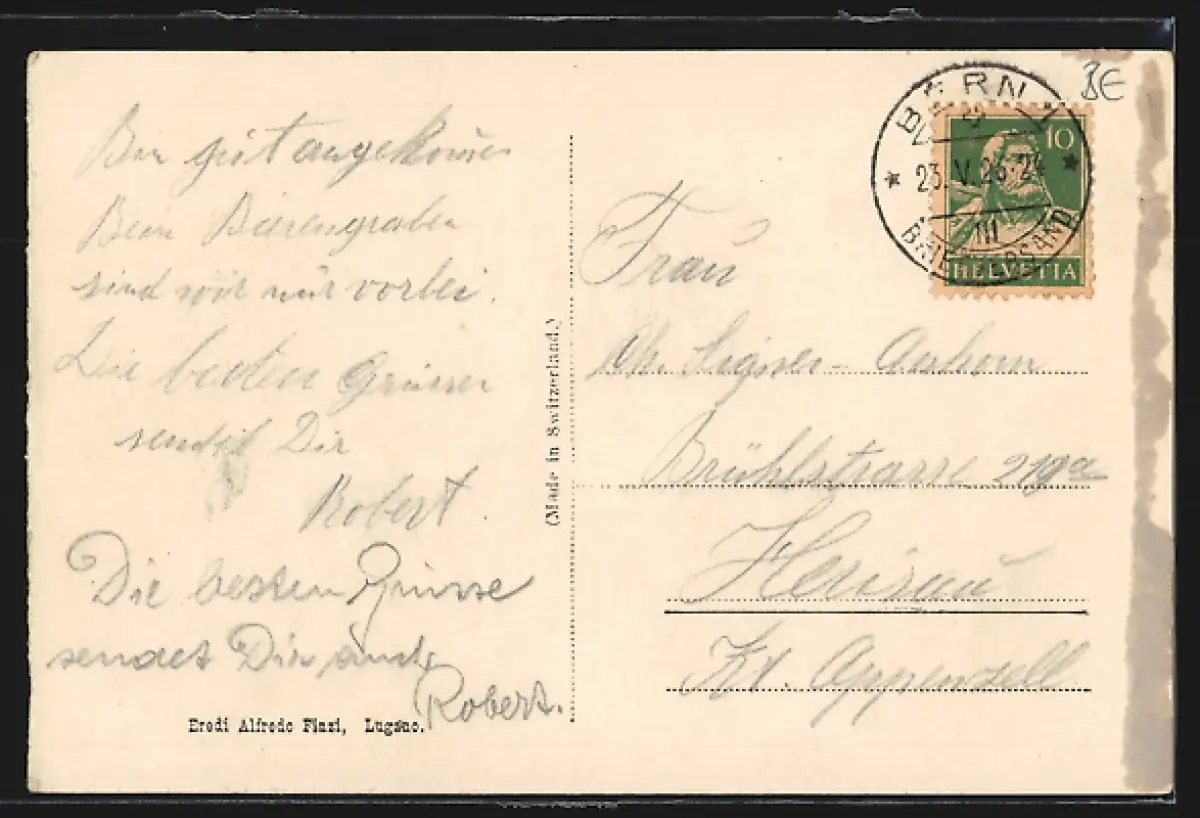 Bin gut angekommen
Beim Bärengraben
sind wir nur vorbei.
Die besten Grüsse
sendet Dir
Robert.
Die besten Grüsse
sendet Dir auch
Robert.
Eredi Alfredo Finzi, Lugano.
(Made in Switzerland.)
BE
BERN 1
23. V. 23-24
III
BRIEFVERSAND
10
HELVETIA
Frau
Signer-
Brühlstrasse 219a
Herisau
Kt. Appenzell